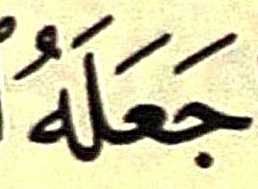 جَعَلَهُ